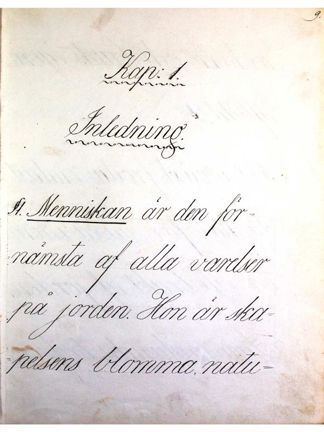 9.
Kap: 1.
Inledning
§1. Menniskan är den för-
nämsta af alla varelser
på jorden. Hon är ska-
pelsens blomma, natu-